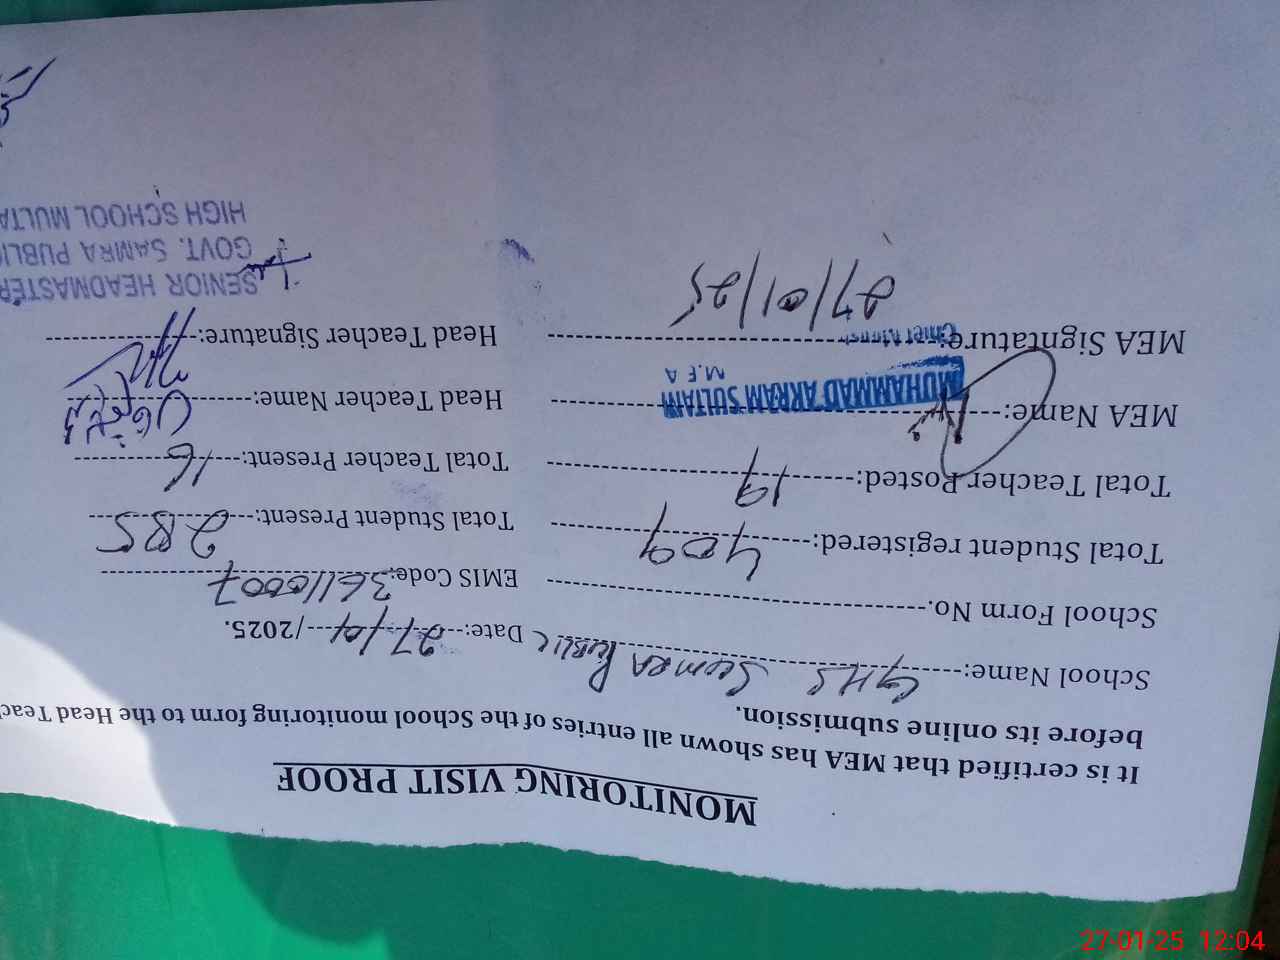 MONITORING VISIT PROOF
It is certified that MEA has shown all entries of the School monitoring form to the Head Teac
before its online submission.
School Name: GHS Sumra Public Date: 27/01/2025.
School Form No. EMIS Code: 36110007
Total Student registered: 409 Total Student Present: 285
Total Teacher Posted: 19 Total Teacher Present: 16
MEA Name: MUHAMMAD AKRAM SULTAN Head Teacher Name:
M.E.A
MEA Signtature: Head Teacher Signature:
27/01/25
SENIOR HEADMASTER
GOVT. SAMRA PUBLI
HIGH SCHOOL MULTA
27-01-25 12:04